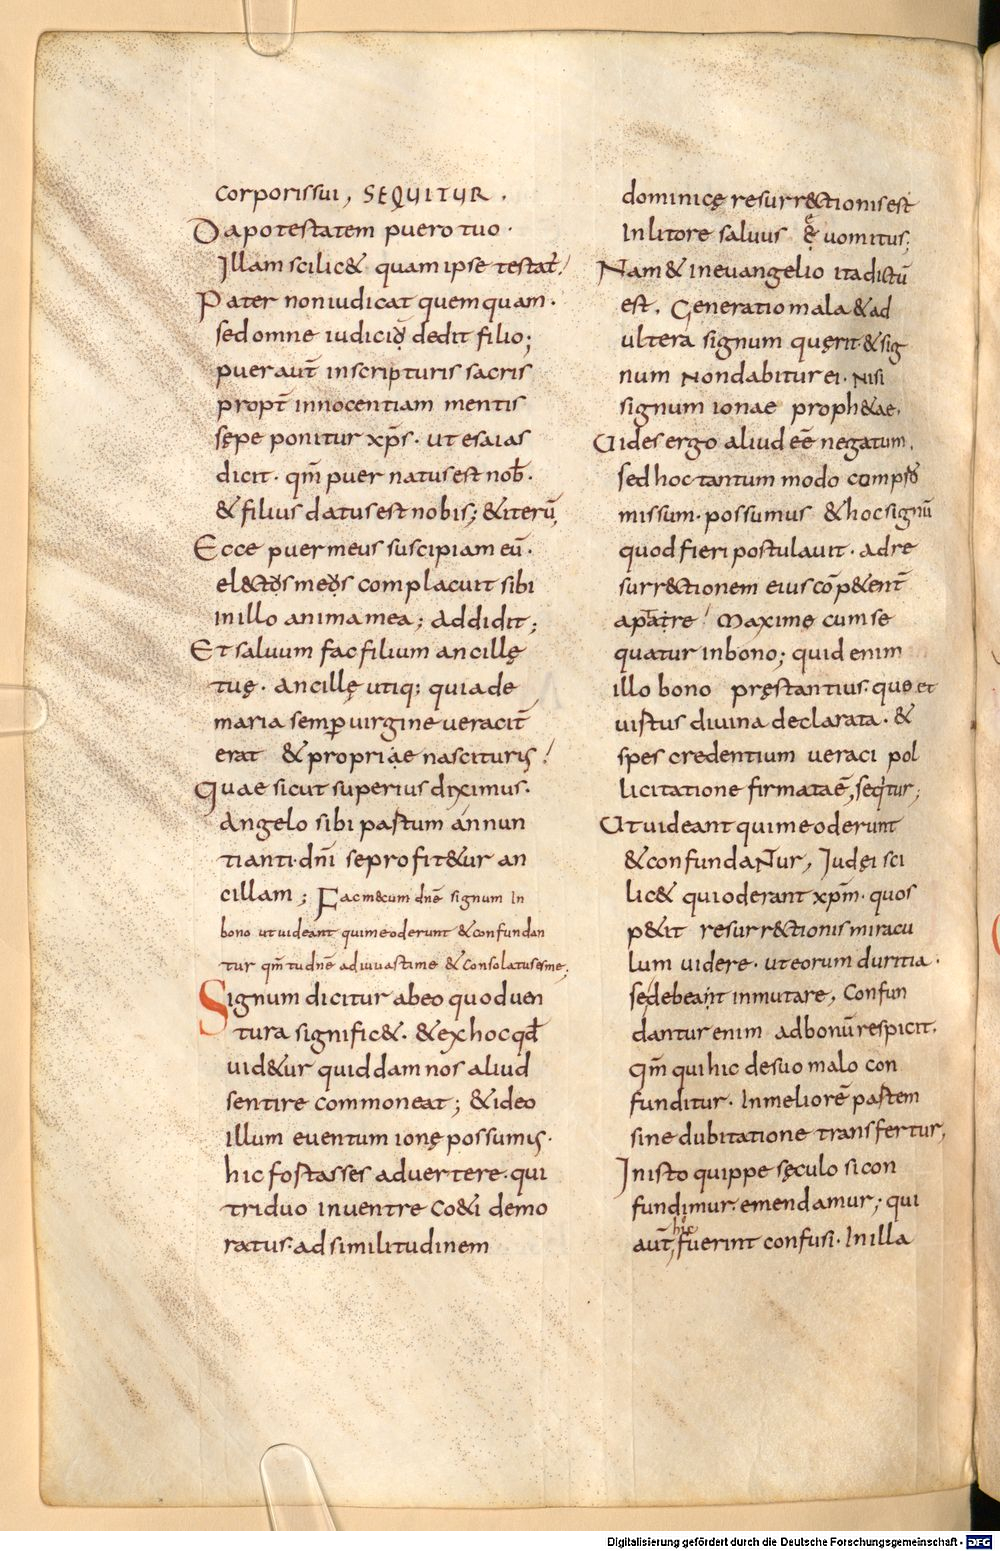 corporissui, SEQUITUR.
Dapotestatem puero tuo.
Illam scilic& quam ipse testat̄!
Pater noniudicat quemquam.
sed omne iudiciọ̄ dedit filio;
puer aut̄ inscripturis sacris
propt̄ innocentiam mentis
sępe ponitur xp̄s. ut esaias
dicit. qm̄ puer natusest nob̄.
& filius datusest nobis; &iterū,
Ecce puermeus suscipiam eū.
el&ctọs meọs complacuit sibi
inillo animamea; Addidit;
Et saluum fac filium ancillę
tuę. Ancillę utiq; quiade
maria semp virgine veracit̄
erat & propriạe nascituriş!
Quae sicut superius diximus.
Angelo sibi pastum annun
tianti. dn̄i seprofit&ur an
cillam; Facm&cum dn̄e signum In
bono utuideant quimeoderunt &confundan
tur qm̄ tu dn̄e adiuuastime &consolatusesme;
Signum dicitur abeo quoduen
tura signific&. &exhoc qd̄
uid&ur quiddam nos aliud
sentire commoneat; &ideo
illum euentum ionę possumiş.
hic fostasses aduertere. qui
triduo inuentre Co&i demo
ratus. adsimilitudinem
dominicę resurr&ctionisest
Inlitore saluus & uomitus;
Nam & ineuangelio itadictū
est. Generatiomala &ad
ultera signum quęrit. &sig
num Nondabitur ei. Nisi
signum ionae proph&ae.
Uides ergo aliud eē negatum.
sed hoc tantum modo compro
missum. possumus &hoc signū
quodfieri postulauit. Adre
surr&ctionem eius cōp&ent̄
apatre! Maxime cumse
quatur inbono; quid enim
illo bono pręstantius. quo et
uistus diuina declarata. &
spes credentium ueraci pol
licitatione firmataē, seqtur;
Utuideant quimeoderunt
&confundaNtur, Judęi sci
lic& quioderant xpm̄. quos
p&iit resurr&ctionis miracu
lum uidere. uteorum duritia.
sedebeạnt inmutare, Confun
dantur enim adbonū respicit.
qm̄ quihic desuo malo con
funditur. Inmeliorē pastem
sine dubitatione transfertur,
Inisto quippe sęculo sicon
fundimur. emendamur; qui
hic
aut̄, fuerint confusi. Inilla
Digitalisierung gefördert durch die Deutsche Forschungsgemeinschaft - DFG